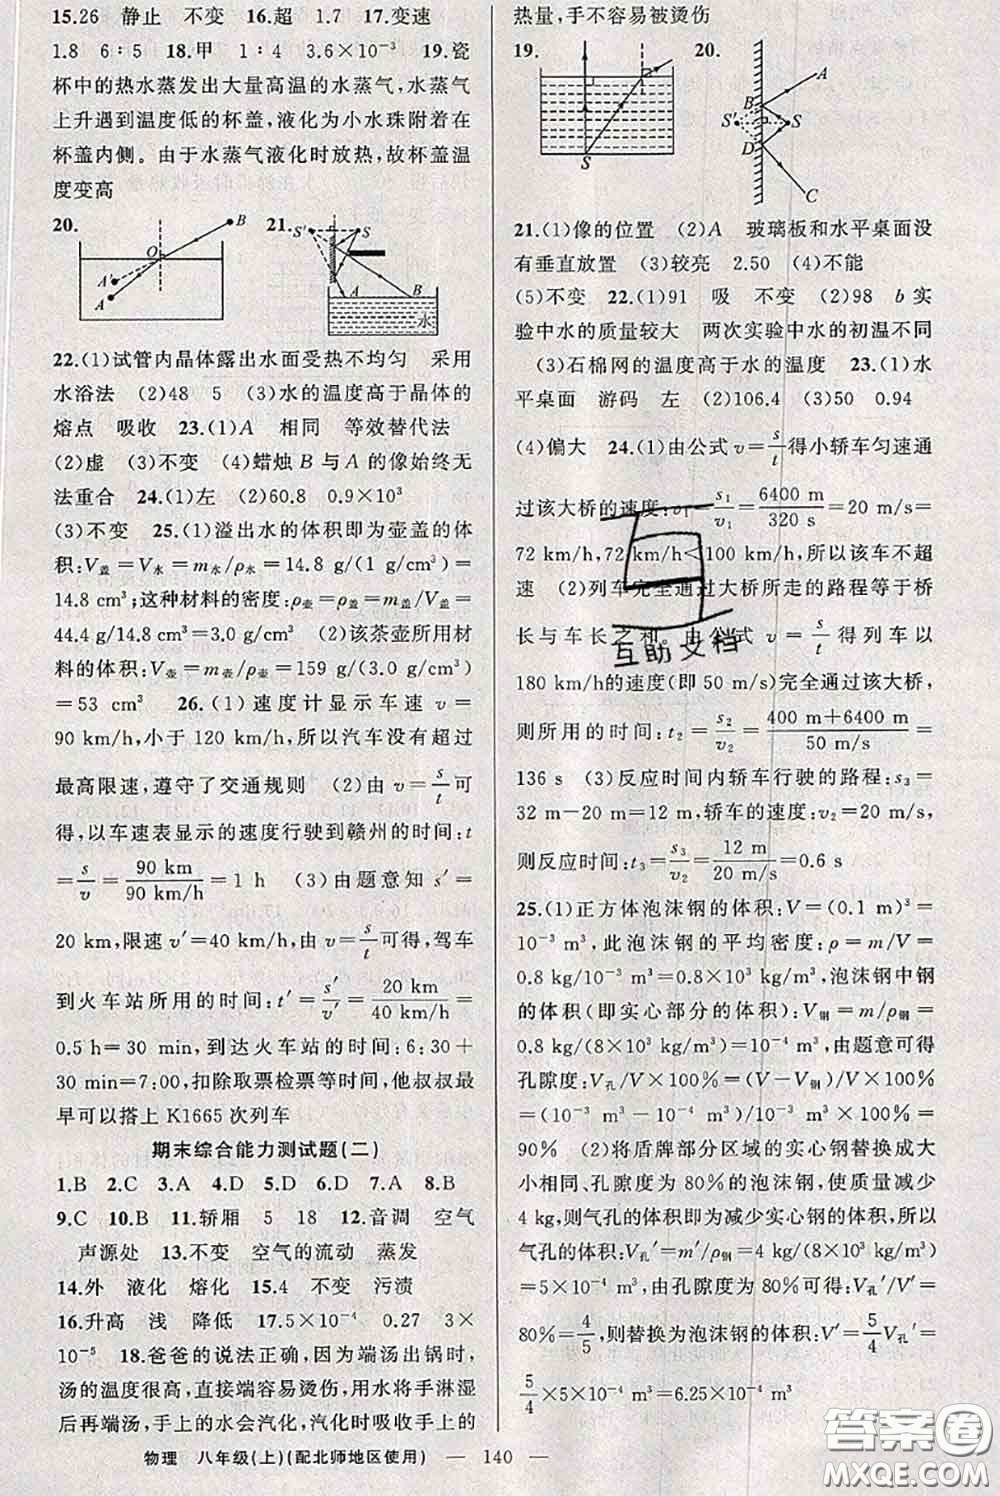 15.26　静止　不变　16.超　1.7　17.变速
1.8　6∶5　18.甲　1∶4　3.6×10⁻³　19.瓷
杯中的热水蒸发出大量高温的水蒸气,水蒸气
上升遇到温度低的杯盖,液化为小水珠附着在
杯盖内侧。由于水蒸气液化时放热,故杯盖温
度变高
20.　21.
B
O
A′
A
S′
S
A
B
水
22.(1)试管内晶体露出水面受热不均匀　采用
水浴法　(2)48　5　(3)水的温度高于晶体的
熔点　吸收　23.(1)A　相同　等效替代法
(2)虚　(3)不变　(4)蜡烛 B 与 A 的像始终无
法重合　24.(1)左　(2)60.8　0.9×10³
(3)不变　25.(1)溢出水的体积即为壶盖的体
积:V盖＝V水＝m水/ρ水＝14.8 g/(1 g/cm³)＝
14.8 cm³;这种材料的密度:ρ壶＝ρ盖＝m盖/V盖＝
44.4 g/14.8 cm³＝3.0 g/cm³　(2)该茶壶所用材
料的体积:V壶＝m壶/ρ壶＝159 g/(3.0 g/cm³)
＝53 cm³　26.(1)速度计显示车速 v＝
90 km/h,小于 120 km/h,所以汽车没有超过
最高限速,遵守了交通规则　(2)由 v＝s/t可
得,以车速表显示的速度行驶到赣州的时间:t
＝s/v＝90 km/90 km/h＝1 h　(3)由题意知 s′＝
20 km,限速 v′＝40 km/h,由 v＝s/t可得,驾车
到火车站所用的时间:t′＝s′/v′＝20 km/40 km/h＝
0.5 h＝30 min,到达火车站的时间:6:30＋
30 min＝7:00,扣除取票检票等时间,他叔叔最
早可以搭上 K1665 次列车
期末综合能力测试题(二)
1.B　2.C　3.A　4.D　5.D　6.D　7.A　8.B
9.C　10.B　11.轿厢　5　18　12.音调　空气
声源处　13.不变　空气的流动　蒸发
14.外　液化　熔化　15.4　不变　污渍
16.升高　浅　降低　17.5×10⁻⁴　0.27　3×
10⁻⁵　18.爸爸的说法正确,因为端汤出锅时,
汤的温度很高,直接端容易烫伤,用水将手淋湿
后再端汤,手上的水会汽化,汽化时吸收手上的
热量,手不容易被烫伤
19.　20.
S
A
B
S′
S
D
C
21.(1)像的位置　(2)A　玻璃板和水平桌面没
有垂直放置　(3)较亮　2.50　(4)不能
(5)不变　22.(1)91　吸　不变　(2)98　b 实
验中水的质量较大　两次实验中水的初温不同
(3)石棉网的温度高于水的温度　23.(1)水
平桌面　游码　左　(2)106.4　(3)50　0.94
(4)偏大　24.(1)由公式 v＝s/t得小轿车匀速通
过该大桥的速度:v₁＝s₁/v₁＝6400 m/320 s＝20 m/s＝
72 km/h,72 km/h＜100 km/h,所以该车不超
速　(2)列车完全通过大桥所走的路程等于桥
长与车长之和。由公式 v＝s/t得列车以
180 km/h的速度(即 50 m/s)完全通过该大桥,
则所用的时间:t₂＝s₂/v₂＝400 m＋6400 m/50 m/s＝
136 s　(3)反应时间内轿车行驶的路程:s₃＝
32 m－20 m＝12 m,轿车的速度:v₂＝20 m/s,
则反应时间:t₃＝s₃/v₂＝12 m/20 m/s＝0.6 s
25.(1)正方体泡沫钢的体积:V＝(0.1 m)³＝
10⁻³ m³,此泡沫钢的平均密度:ρ＝m/V＝
0.8 kg/10⁻³m³＝0.8×10³ kg/m³,泡沫钢中钢
的体积(即实心部分的体积):V钢＝m/ρ钢＝
0.8 kg/(8×10³ kg/m³)＝10⁻⁴ m³,由题意可得
孔隙度:V孔/V×100％＝(V－V钢)/V×100％
＝(10⁻³ m³－10⁻⁴ m³)/(10⁻³ m³)×100％＝
90％　(2)将盾牌部分区域的实心钢替换成大
小相同、孔隙度为 80％的泡沫钢,使质量减少
4 kg,则气孔的体积即为减少实心钢的体积,所以
气孔的体积:V孔′＝m′/ρ钢＝4 kg/(8×10³ kg/m³)
＝5×10⁻⁴ m³,由孔隙度为 80％可得:V孔′/V′＝
80％＝4/5,则替换为泡沫钢的体积:V′＝5/4V孔′＝
5/4×5×10⁻⁴ m³＝6.25×10⁻⁴ m³
物理　八年级(上)(配北师地区使用)　—　140　—
互助文档
答案圈
MXQE.COM